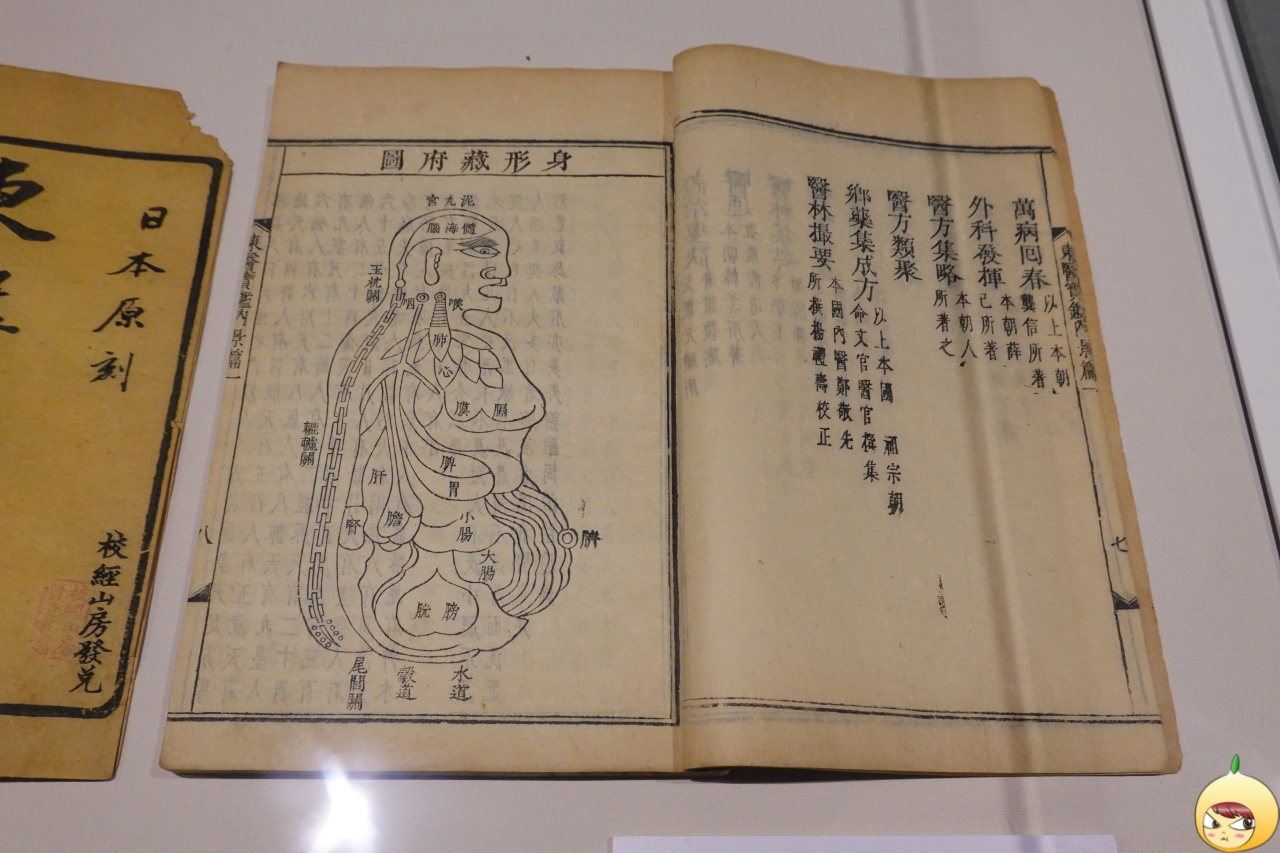 萬病回春
以上本朝
龔信所著
外科發揮
本朝薛
己所著
醫方集略
本朝人
所著之
醫方類聚
鄉藥集成方
以上本國 祖宗朝
命文官醫官撰集
醫林撮要
本國內醫鄭敬先
所撰楊禮壽校正
東醫寶鑑內景篇一
七
身形藏府圖
泥丸宮
髓海腦
玉枕關
咽
喉
肺
心
膈膜
脾
胃
肝
膽
腎
小腸
大腸
臍
膀胱
轆轤關
尾閭關
穀道
水道
東醫寶鑑內景篇一
八
日本原刻
校經山房發兌